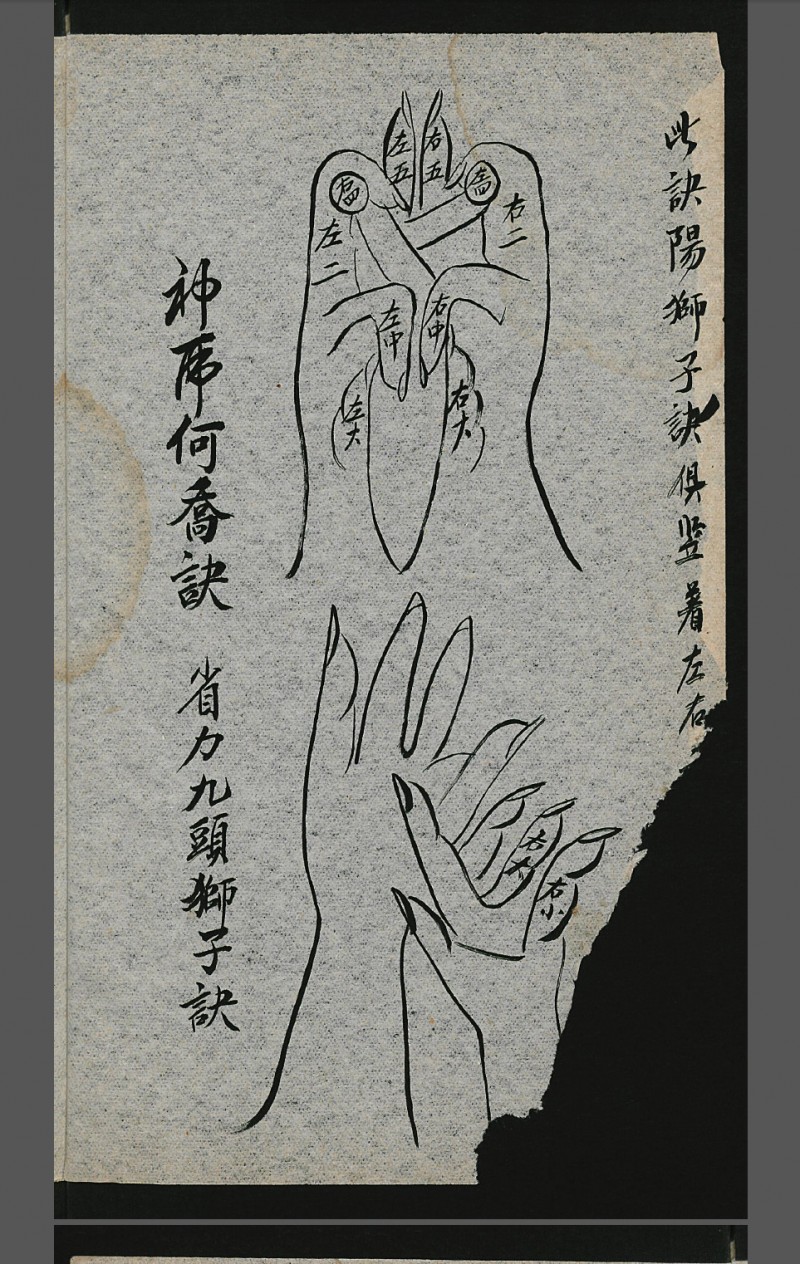 此訣陽獅子訣俱竖著左右
左五
右五
左四
左二
右二
左中
右中
左大
右大
右小
神乕何喬訣
省力九頭獅子訣